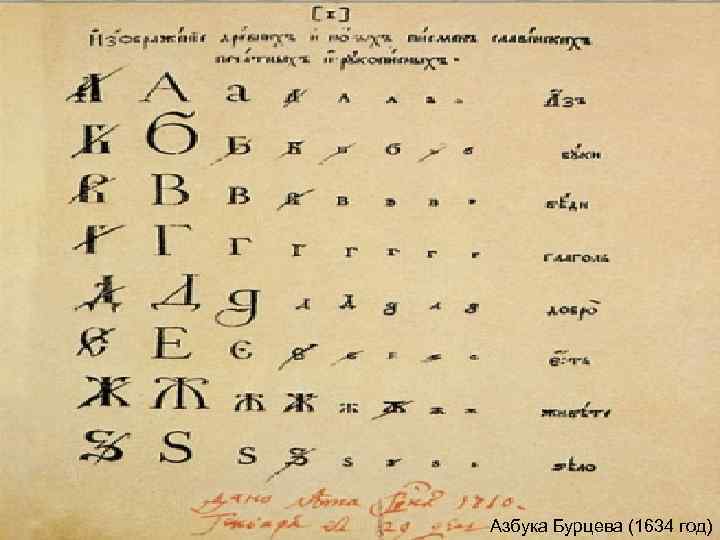 [1]
Изѡбраже́нїе дре́внихъ и҆ но́выхъ пи́сменъ славе́нскихъ
печа́тныхъ и҆ рꙋкопи́сныхъ.
А А а А а а а а А҆́зъ
Б Б Б Б б б б б бꙋ́ки
В В В В в в в в вѣ́ди
Г Г Г Г г г г г глаголь
Д Д д д Д д д д добро̀
Є Е є є є е є е є҆́сть
Ж Ж ж Ж ж Ж ж ж живѣ́те
Ѕ Ѕ ѕ Ѕ ѕ ѕ ѕ ѕ ѕѣло̀
Дано Лѣта 1710.
Генваря 29 день
Азбука Бурцева (1634 год)